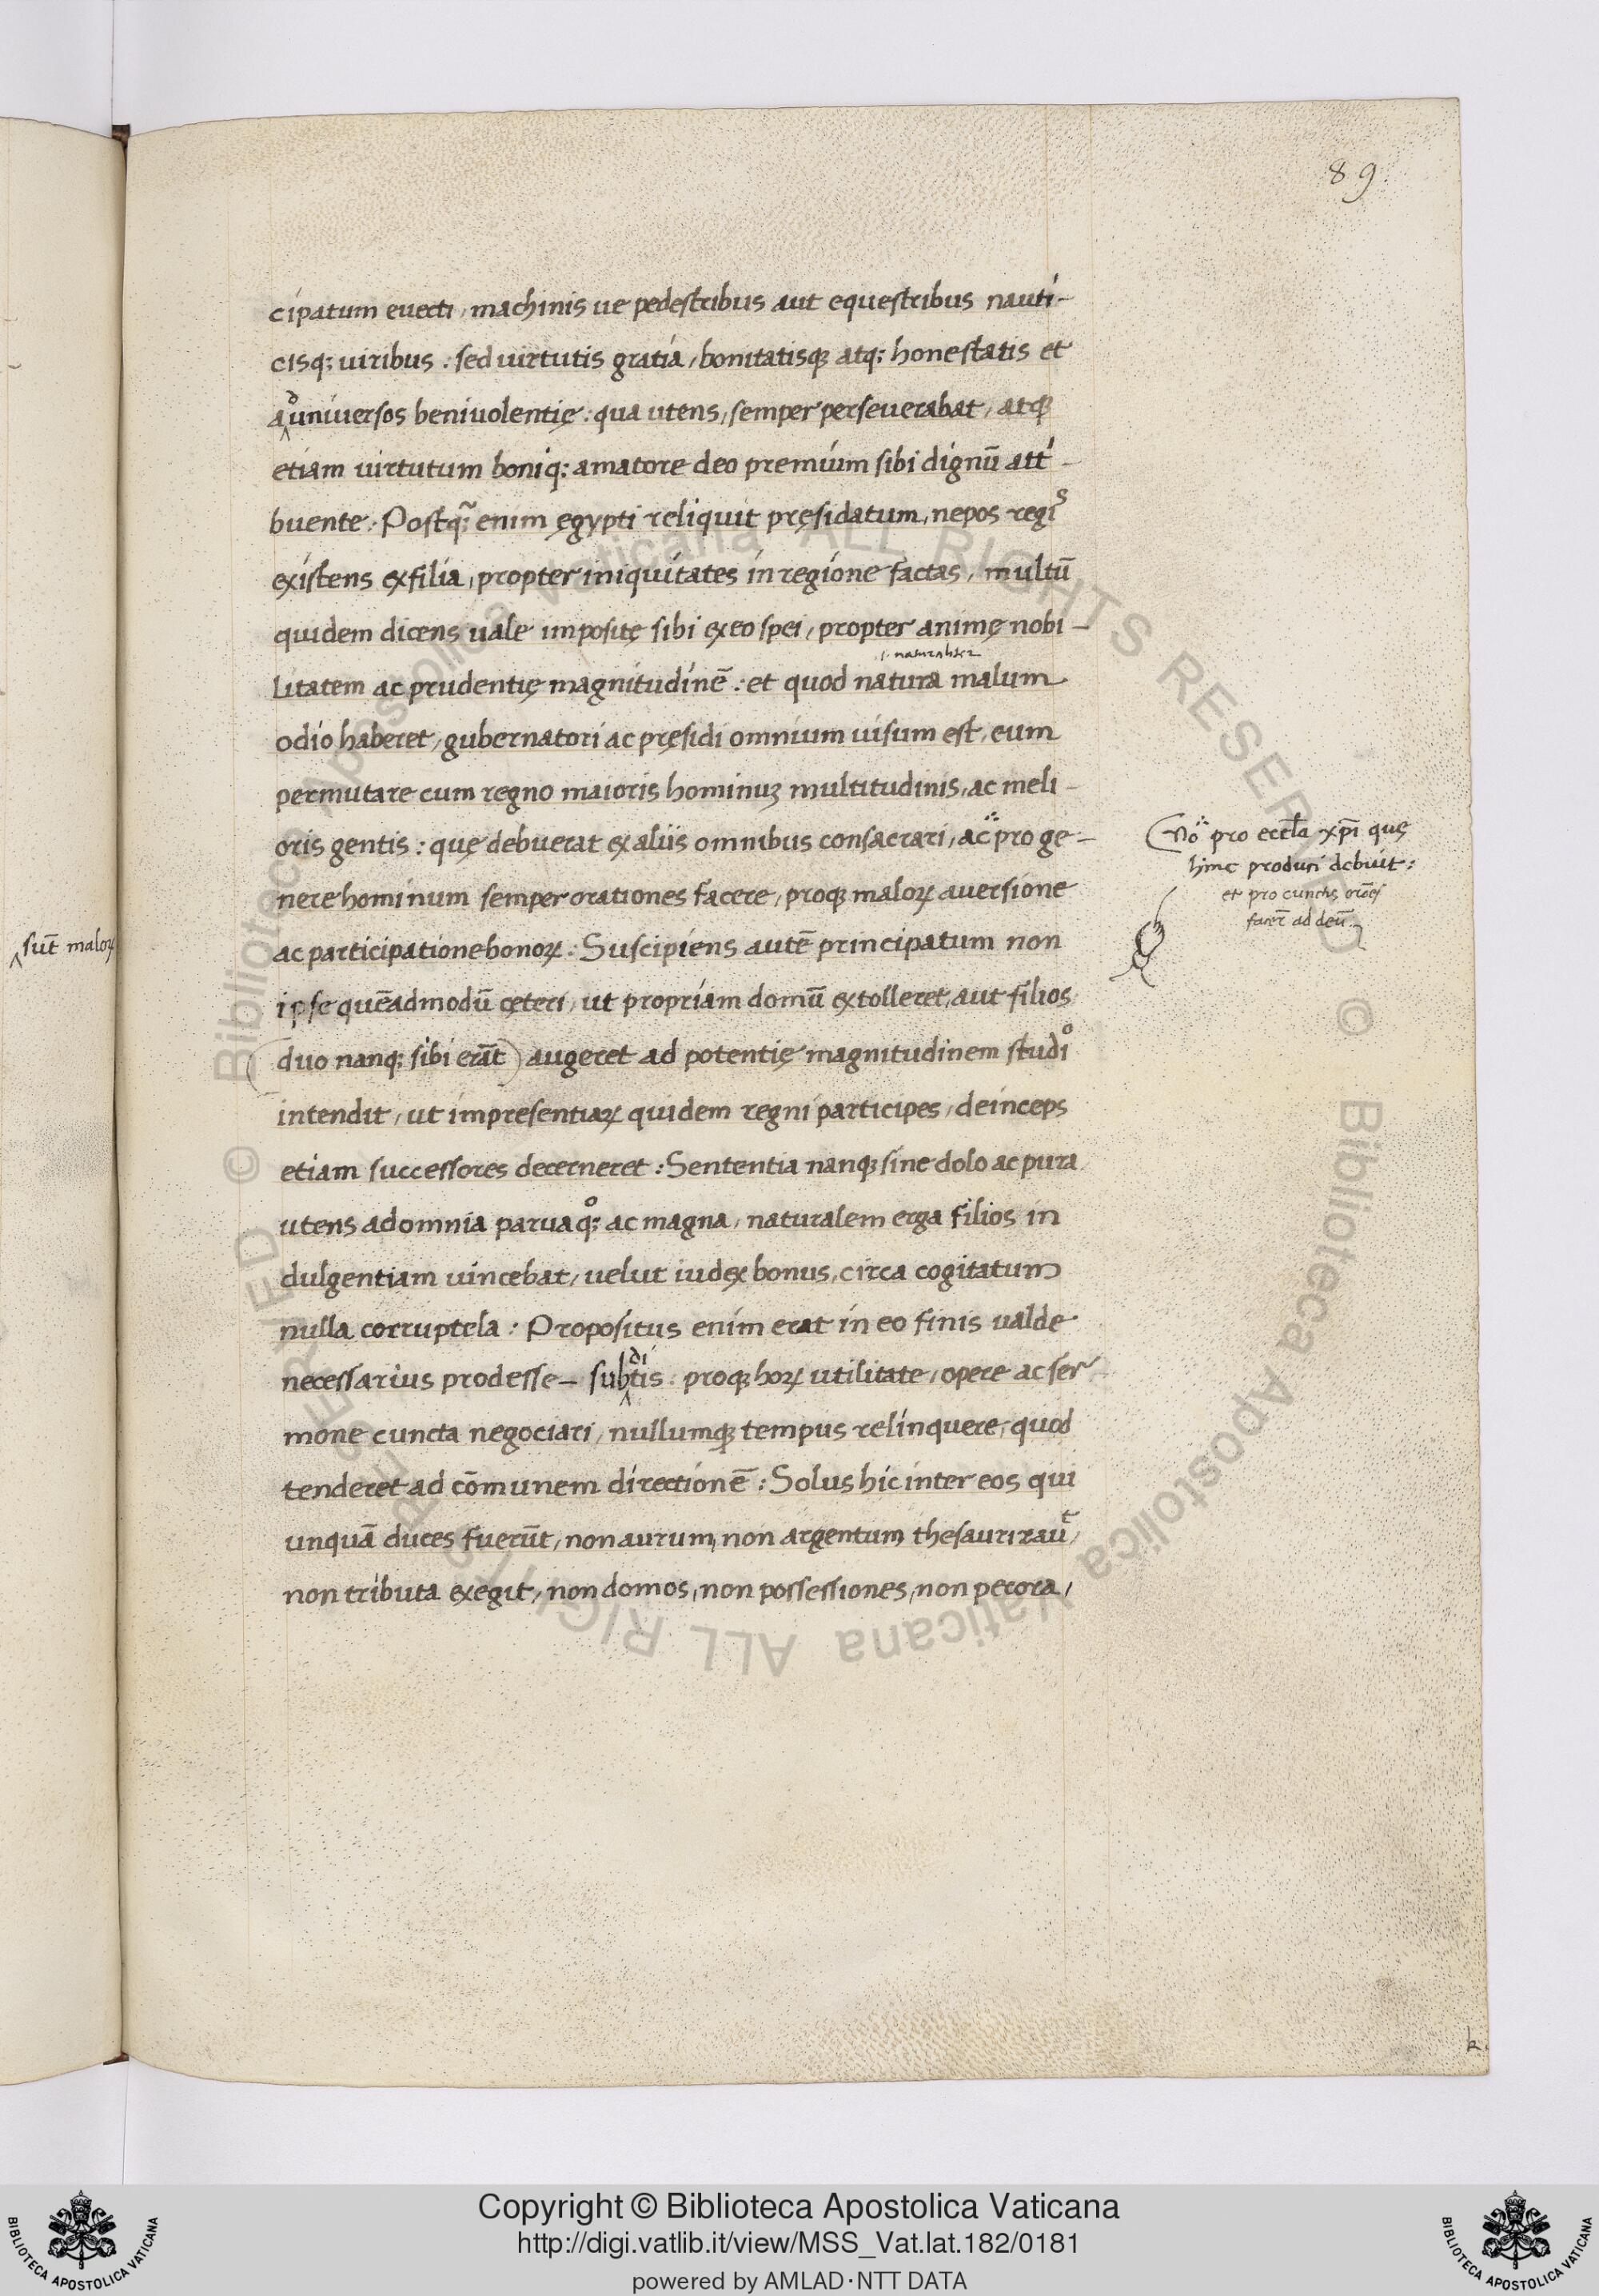 89
cipatum euecti, machinis ue pedestribus aut equestribus nauti-
cisq; uiribus : sed uirtutis gratia, bonitatisq; atq; honestatis et
ad uniuersos beniuolentię : qua utens, semper perseuerabat, atq;
etiam uirtutum boniq; amatore deo premium sibi dignū atti-
buente. Postq̃; enim ęgypti reliquit pręsidatum, nepos regis
existens ex filia, propter iniquitates in regione factas, multū
quidem dicens uale imposite sibi ex eo spei, propter animę nobi-
.i. naturaliter
litatem ac prudentię magnitudinē : et quod natura malum
odio haberet, gubernatori ac pręsidi omnium uisum est, eum
permutare cum regno maioris hominuꝫ multitudinis, ac meli-
oris gentis : quę debuerat ex aliis omnibus consacrari, ac̈ pro ge-
nere hominum semper orationes facere, proq; maloꝝ auersione
ac participatione bonoꝝ : Suscipiens autē principatum non
ipse quēadmodū ceteri, ut propriam domū extolleret, aut filios
(duo nanq; sibi erāt) augeret ad potentię magnitudinem studio
intendit, ut impresentiaꝝ quidem regni participes, deinceps
etiam successores decerneret : Sententia nanq; sine dolo ac pura
utens ad omnia paruaq; ac magna, naturalem erga filios in
dulgentiam uincebat, uelut iudex bonus, circa cogitatum
nulla corruptela : Propositus enim erat in eo finis ualde
necessarius prodesse – subditis : proq; hoꝝ utilitate, opere ac ser
mone cuncta negociari, nullumq; tempus relinquere, quod
tenderet ad cōmunem directionē : Solus hic inter eos qui
unquā duces fuerūt, non aurum, non argentum thesaurizauit,
non tributa exegit, non domos, non possessiones, non pecora,
No pro eccl̄a xp̄i quę
hinc produci debuit :
et pro cunctis orōes
facer̄ ad deū
sūt maloꝝ
k.
Copyright © Biblioteca Apostolica Vaticana
http://digi.vatlib.it/view/MSS_Vat.lat.182/0181
powered by AMLAD·NTT DATA
BIBLIOTECA APOSTOLICA VATICANA
BIBLIOTECA APOSTOLICA VATICANA
© Biblioteca Apostolica Vaticana ALL RIGHTS RESERVED
© Biblioteca Apostolica Vaticana ALL RIGHTS RESERVED